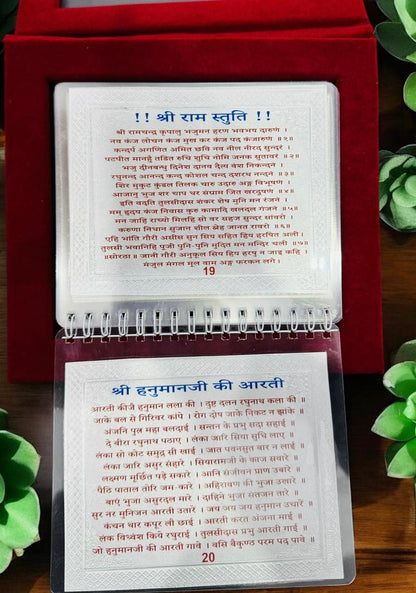 !! श्री राम स्तुति !!
श्री रामचन्द्र कृपालु भजुमन हरण भवभय दारुणं ।
नव कंज लोचन कंज मुख कर कंज पद कंजारुणं ॥१॥
कन्दर्प अगणित अमित छवि नव नील नीरद सुन्दरं ।
पटपीत मानहुँ तडित रुचि शुचि नोमि जनक सुतावरं ॥२॥
भजु दीनबन्धु दिनेश दानव दैत्य वंश निकन्दनं ।
रघुनन्द आनन्द कन्द कोशल चन्द दशरथ नन्दनं ॥३॥
शिर मुकुट कुंडल तिलक चारु उदारु अङ्ग विभूषणं ।
आजानु भुज शर चाप धर संग्राम जित खरदूषणं ॥४॥
इति वदति तुलसीदास शंकर शेष मुनि मन रंजनं ।
मम् हृदय कंज निवास कुरु कामादि खलदल गंजनं ॥५॥
मन जाहि राच्यो मिलहि सो वर सहज सुन्दर सांवरो ।
करुणा निधान सुजान शील स्नेह जानत रावरो ॥६॥
एहि भांति गौरी असीस सुन सिय सहित हिय हरषित अली।
तुलसी भवानिहि पूजी पुनि-पुनि मुदित मन मन्दिर चली ॥७॥
॥सोरठा॥ जानी गौरी अनुकूल सिय हिय हरषु न जाइ कहि ।
मंजुल मंगल मूल वाम अङ्ग फरकन लगे।
19
श्री हनुमानजी की आरती
आरती कीजै हनुमान लला की । दुष्ट दलन रघुनाथ कला की ॥
जाके बल से गिरिवर कांपे । रोग दोष जाके निकट न झांके ॥
अंजनि पुत्र महा बलदाई । सन्तन के प्रभु सदा सहाई ॥
दे बीरा रघुनाथ पठाए । लंका जारि सिया सुधि लाए ॥
लंका सो कोट समुद्र सी खाई । जात पवनसुत बार न लाई ॥
लंका जारि असुर संहारे । सियारामजी के काज सवारे ॥
लक्ष्मण मूर्छित पड़े सकारे । आनि संजीवन प्राण उबारे ॥
पैठि पाताल तोरि जम-कारे । अहिरावण की भुजा उखारे ॥
बाएं भुजा असुरदल मारे । दाहिने भुजा संतजन तारे ॥
सुर नर मुनिजन आरती उतारे । जय जय जय हनुमान उचारें ॥
कंचन थार कपूर लौ छाई । आरती करत अंजना माई ॥
लंक विध्वंश किये रघुराई । तुलसीदास प्रभु आरती गाई ॥
जो हनुमानजी की आरती गावे । वसि बैकुण्ठ परम पद पावे ॥
20